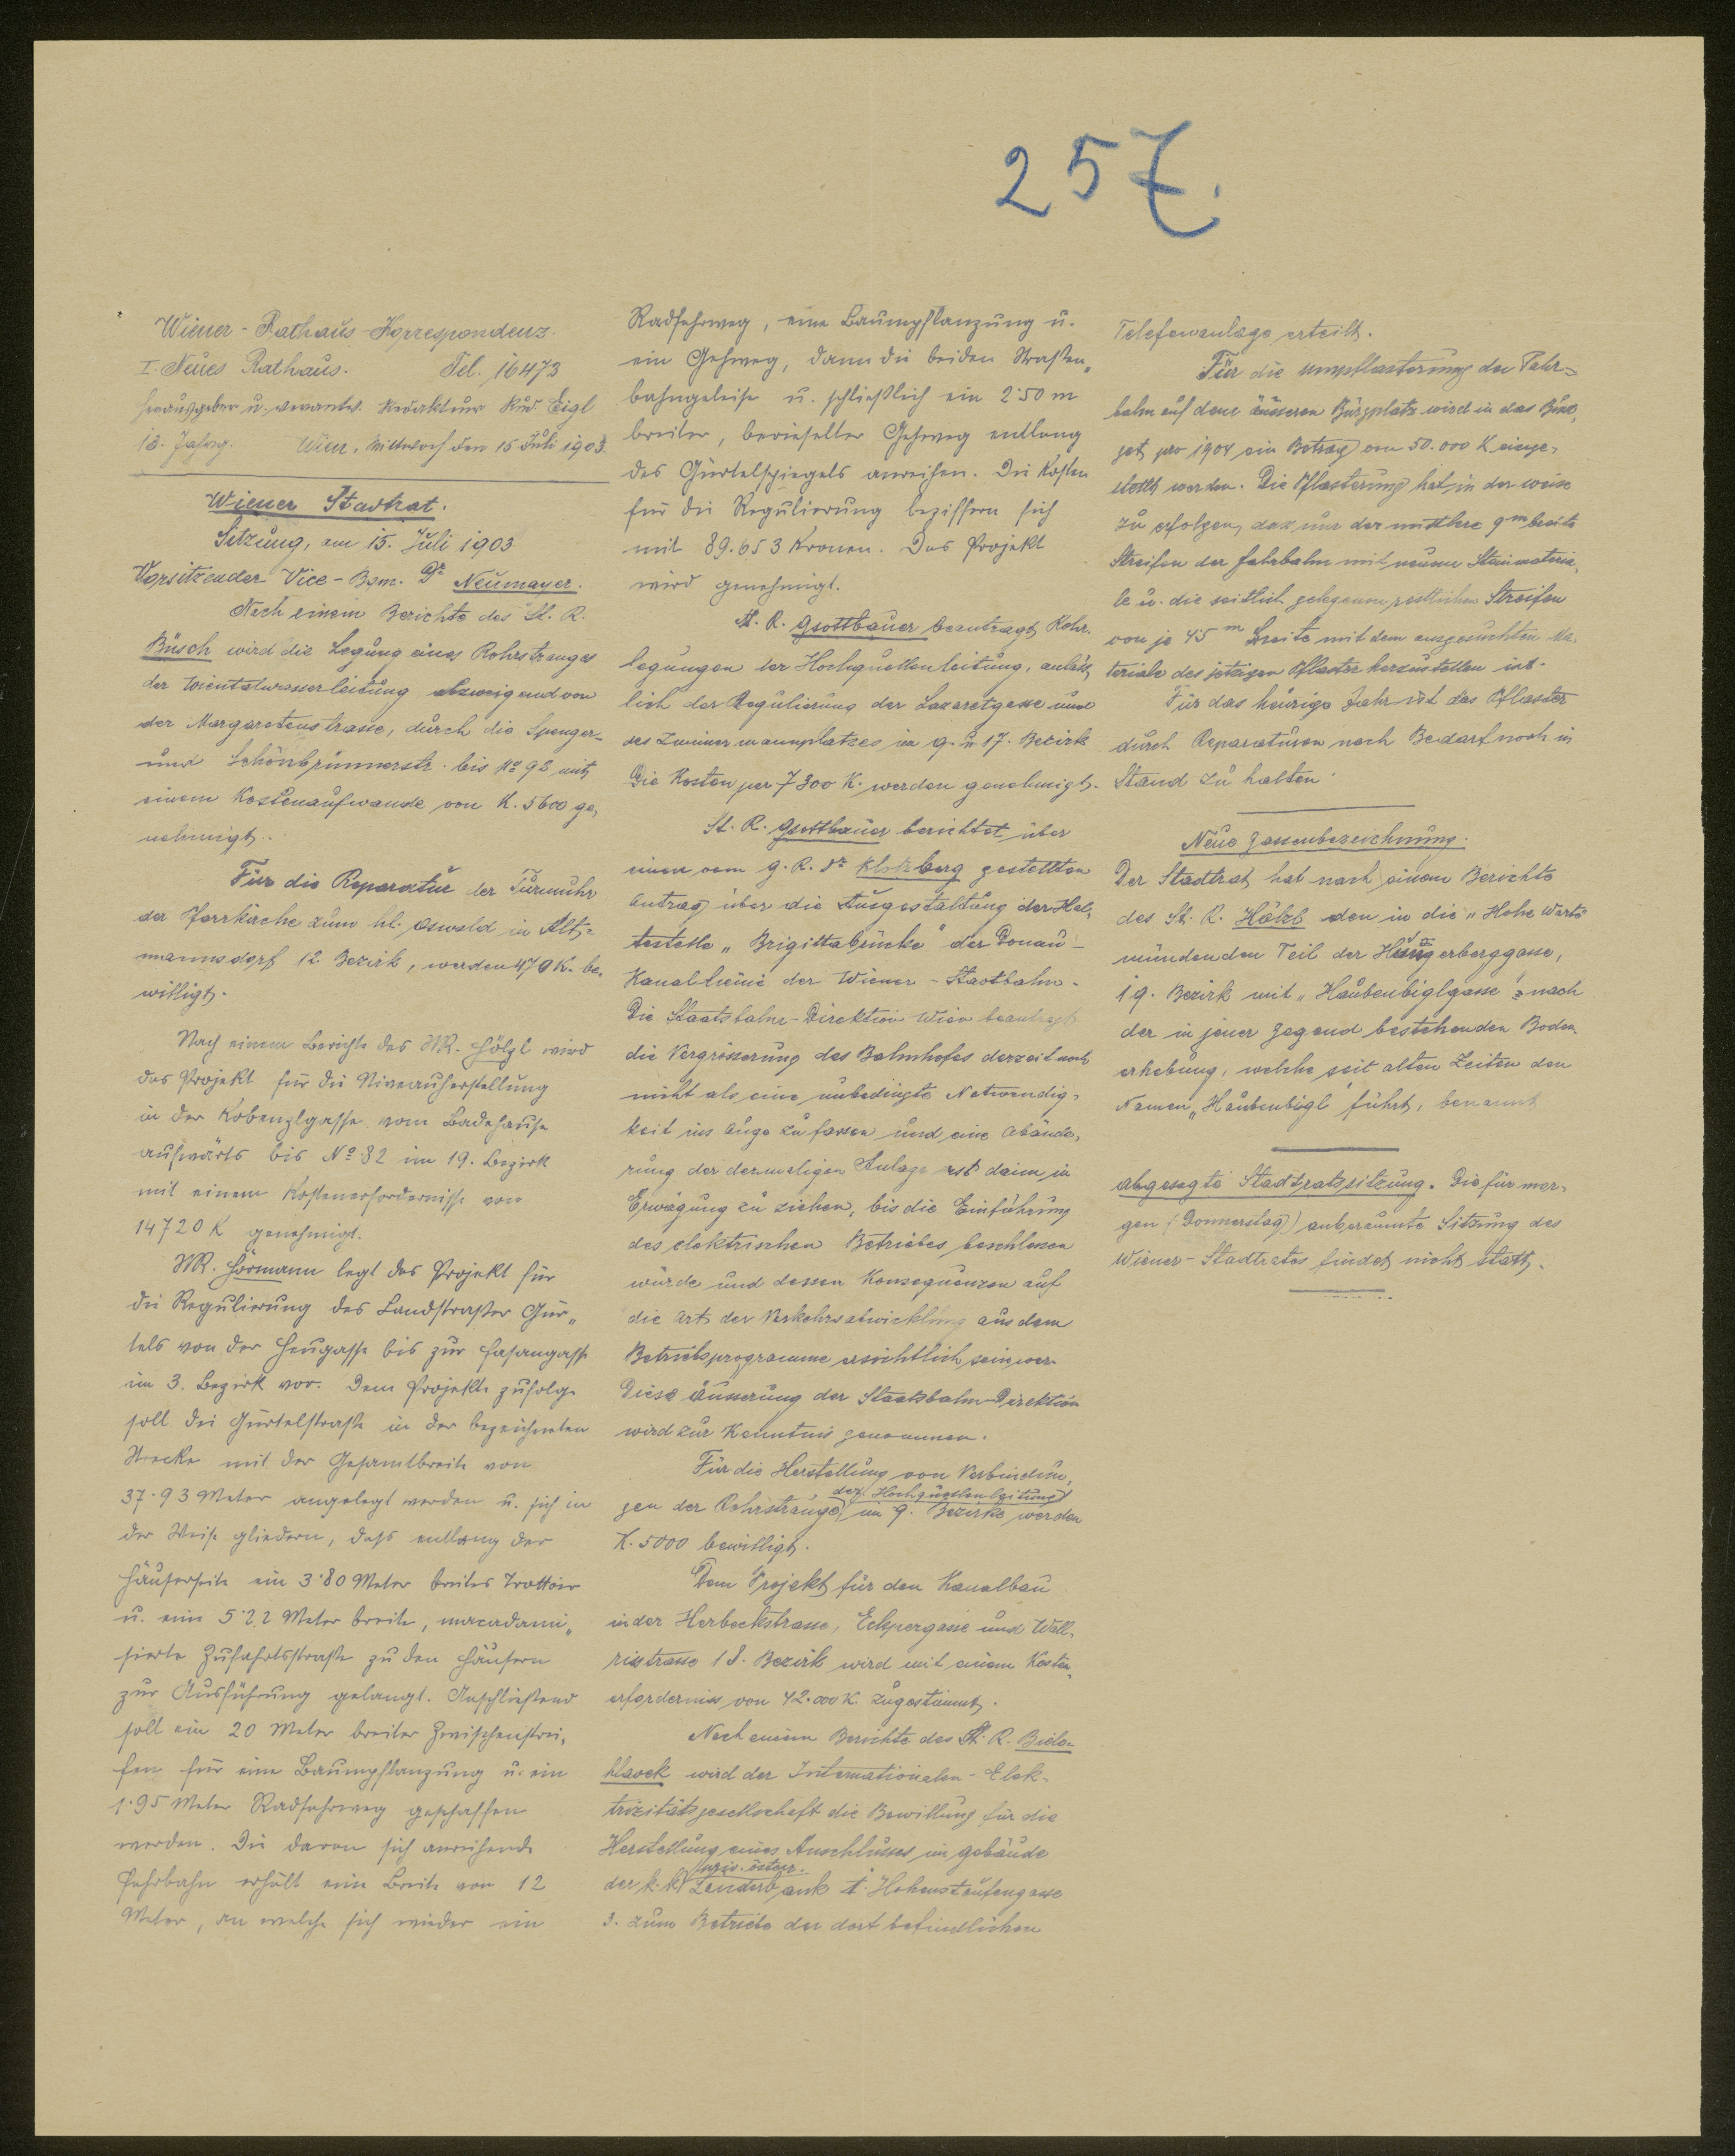 257.
Wiener-Rathaus-Korrespondenz.
I. Neues Rathaus. Tel. 16473
Herausgeber u. verantw. Redakteur Rud. Eigl
13. Jahrg. Wien, Mittwoch den 15 Juli 1903.
Wiener Stadtrat.
Sitzung, am 15. Juli 1903
Vorsitzender Vice-Bgm. Dr Neumayer.
Nach einem Berichte des St. R.
Büsch wird die Legung eines Rohrstranges
der Wientalwasserleitung abzweigend von
der Margaretenstrasse, durch die Spenger-
und Schönbrunnerstr. bis No 92 mit
einem Kostenaufwande von K. 5600 ge-
nehmigt.
Für die Reparatur der Turmuhr
der Pfarrkirche zum hl. Oswald in Alt-
mannsdorf 12. Bezirk, werden 470 K. be-
willigt.
Nach einem Berichte des StR. Hölzl wird
das Projekt für die Niveauherstellung
in der Kobenzlgasse vom Badehause
aufwärts bis No 82 im 19. Bezirk
mit einem Kostenerfordernisse von
14720 K genehmigt.
StR. Hörmann legt das Projekt für
die Regulierung des Landstraßer Gür-
tels von der Heugasse bis zur Fasangasse
im 3. Bezirk vor. Dem Projekte zufolge
soll die Gürtelstraße in der bezeichneten
Strecke mit der Gesamtbreite von
37.93 Meter angelegt werden u. sich in
der Weise gliedern, daß entlang der
Häuserseite ein 3.80 Meter breites Trottoir
u. eine 5.22 Meter breite, macadami-
sierte Zufahrtsstraße zu den Häusern
zur Ausführung gelangt. Anschließend
soll ein 20 Meter breiter Zwischenstrei-
fen für eine Baumpflanzung u. ein
1.95 Meter Radfahrweg geschaffen
werden. Die daran sich anreihende
Fahrbahn erhält eine Breite von 12
Meter, an welche sich wieder ein
Radfahrweg, eine Baumpflanzung u.
ein Gehweg, dann die beiden Straßen-
bahngeleise u. schließlich ein 2.50 m
breiter, berieselter Gehweg entlang
des Gürtelspiegels anreihen. Die Kosten
für die Regulierung beziffern sich
mit 89.653 Kronen. Das Projekt
wird genehmigt.
St. R. Gsottbauer beantragt Rohr-
legungen der Hochquellenleitung, anläß-
lich der Regulierung der Lazaretgasse und
des Zimmermannplatzes im 9. u. 17. Bezirk
Die Kosten per 7300 K. werden genehmigt.
St. R. Gsottbauer berichtet über
einen vom G. R. Dr Klotzberg gestellten
Antrag über die Ausgestaltung der Hal-
testelle „Brigittabrücke" der Donau-
Kanallinie der Wiener-Stadtbahn.
Die Staatsbahn-Direktion Wien beantragt
die Vergrösserung des Bahnhofes derzeit noch
nicht als eine unbedingte Notwendig-
keit ins Auge zu fassen und eine Abände-
rung der dermaligen Anlage erst dann in
Erwägung zu ziehen, bis die Einführung
des elektrischen Betriebes beschlossen
würde und dessen Konsequenzen auf
die Art der Verkehrsabwicklung aus dem
Betriebsprogramme ersichtlich sein wer-
Diese Äusserung der Staatsbahn-Direktion
wird zur Kenntnis genommen.
Für die Herstellung von Verbindun-
gen der Rohrstränge der Hochquellenleitung im 9. Bezirke werden
K. 5000 bewilligt.
Dem Projekt für den Kanalbau
in der Herbeckstrasse, Eckpergasse und Wall-
risstrasse 18. Bezirk wird mit einem Kosten-
erfordernis von 42.000 K. zugestimmt.
Nach einem Berichte des St. R. Bielo-
hlavek wird der Internationalen-Elek-
trizitätsgesellschaft die Bewillung für die
Herstellung eines Anschlusses im Gebäude
der k.k. priv. österr. Länderbank I. Hohenstaufengasse
3. zum Betriebe der dort befindlichen
Telefonanlage erteilt.
Für die Umpflasterung der Fahr-
bahn auf dem äusseren Burgplatz wird in das Bud-
get pro 1904 ein Betrag von 50.000 K einge-
stellt werden. Die Pflasterung hat in der weise
zu erfolgen, daz nur der mittlere 9 m breite
Streifen der Fahrbahn mit neuem Steinmateria-
le u. die seitlich gelegenen restlichen Streifen
von je 4.5 m Breite mit dem ausgesuchten Ma-
teriale des jetzigen Pflaster herzustellen ist.
Für das heurige Jahr ist das Pflaster
durch Reparaturen nach Bedarf noch in
Stand zu halten.
Neue Gassenbezeichnung.
Der Stadtrat hat nach einem Berichte
des St. R. Hölzl den in die „Hohe Warte
mündenden Teil der Hungerberggasse,
19. Bezirk mit „Haubenbiglgasse" nach
der in jener Gegend bestehenden Boden
erhebung, welche seit alten Zeiten den
Namen „Haubenbigl" führt, benannt
Abgesagte Stadtratssitzung. Die für mor-
gen (Donnerstag) anberaumte Sitzung des
Wiener-Stadtrates findet nicht statt.